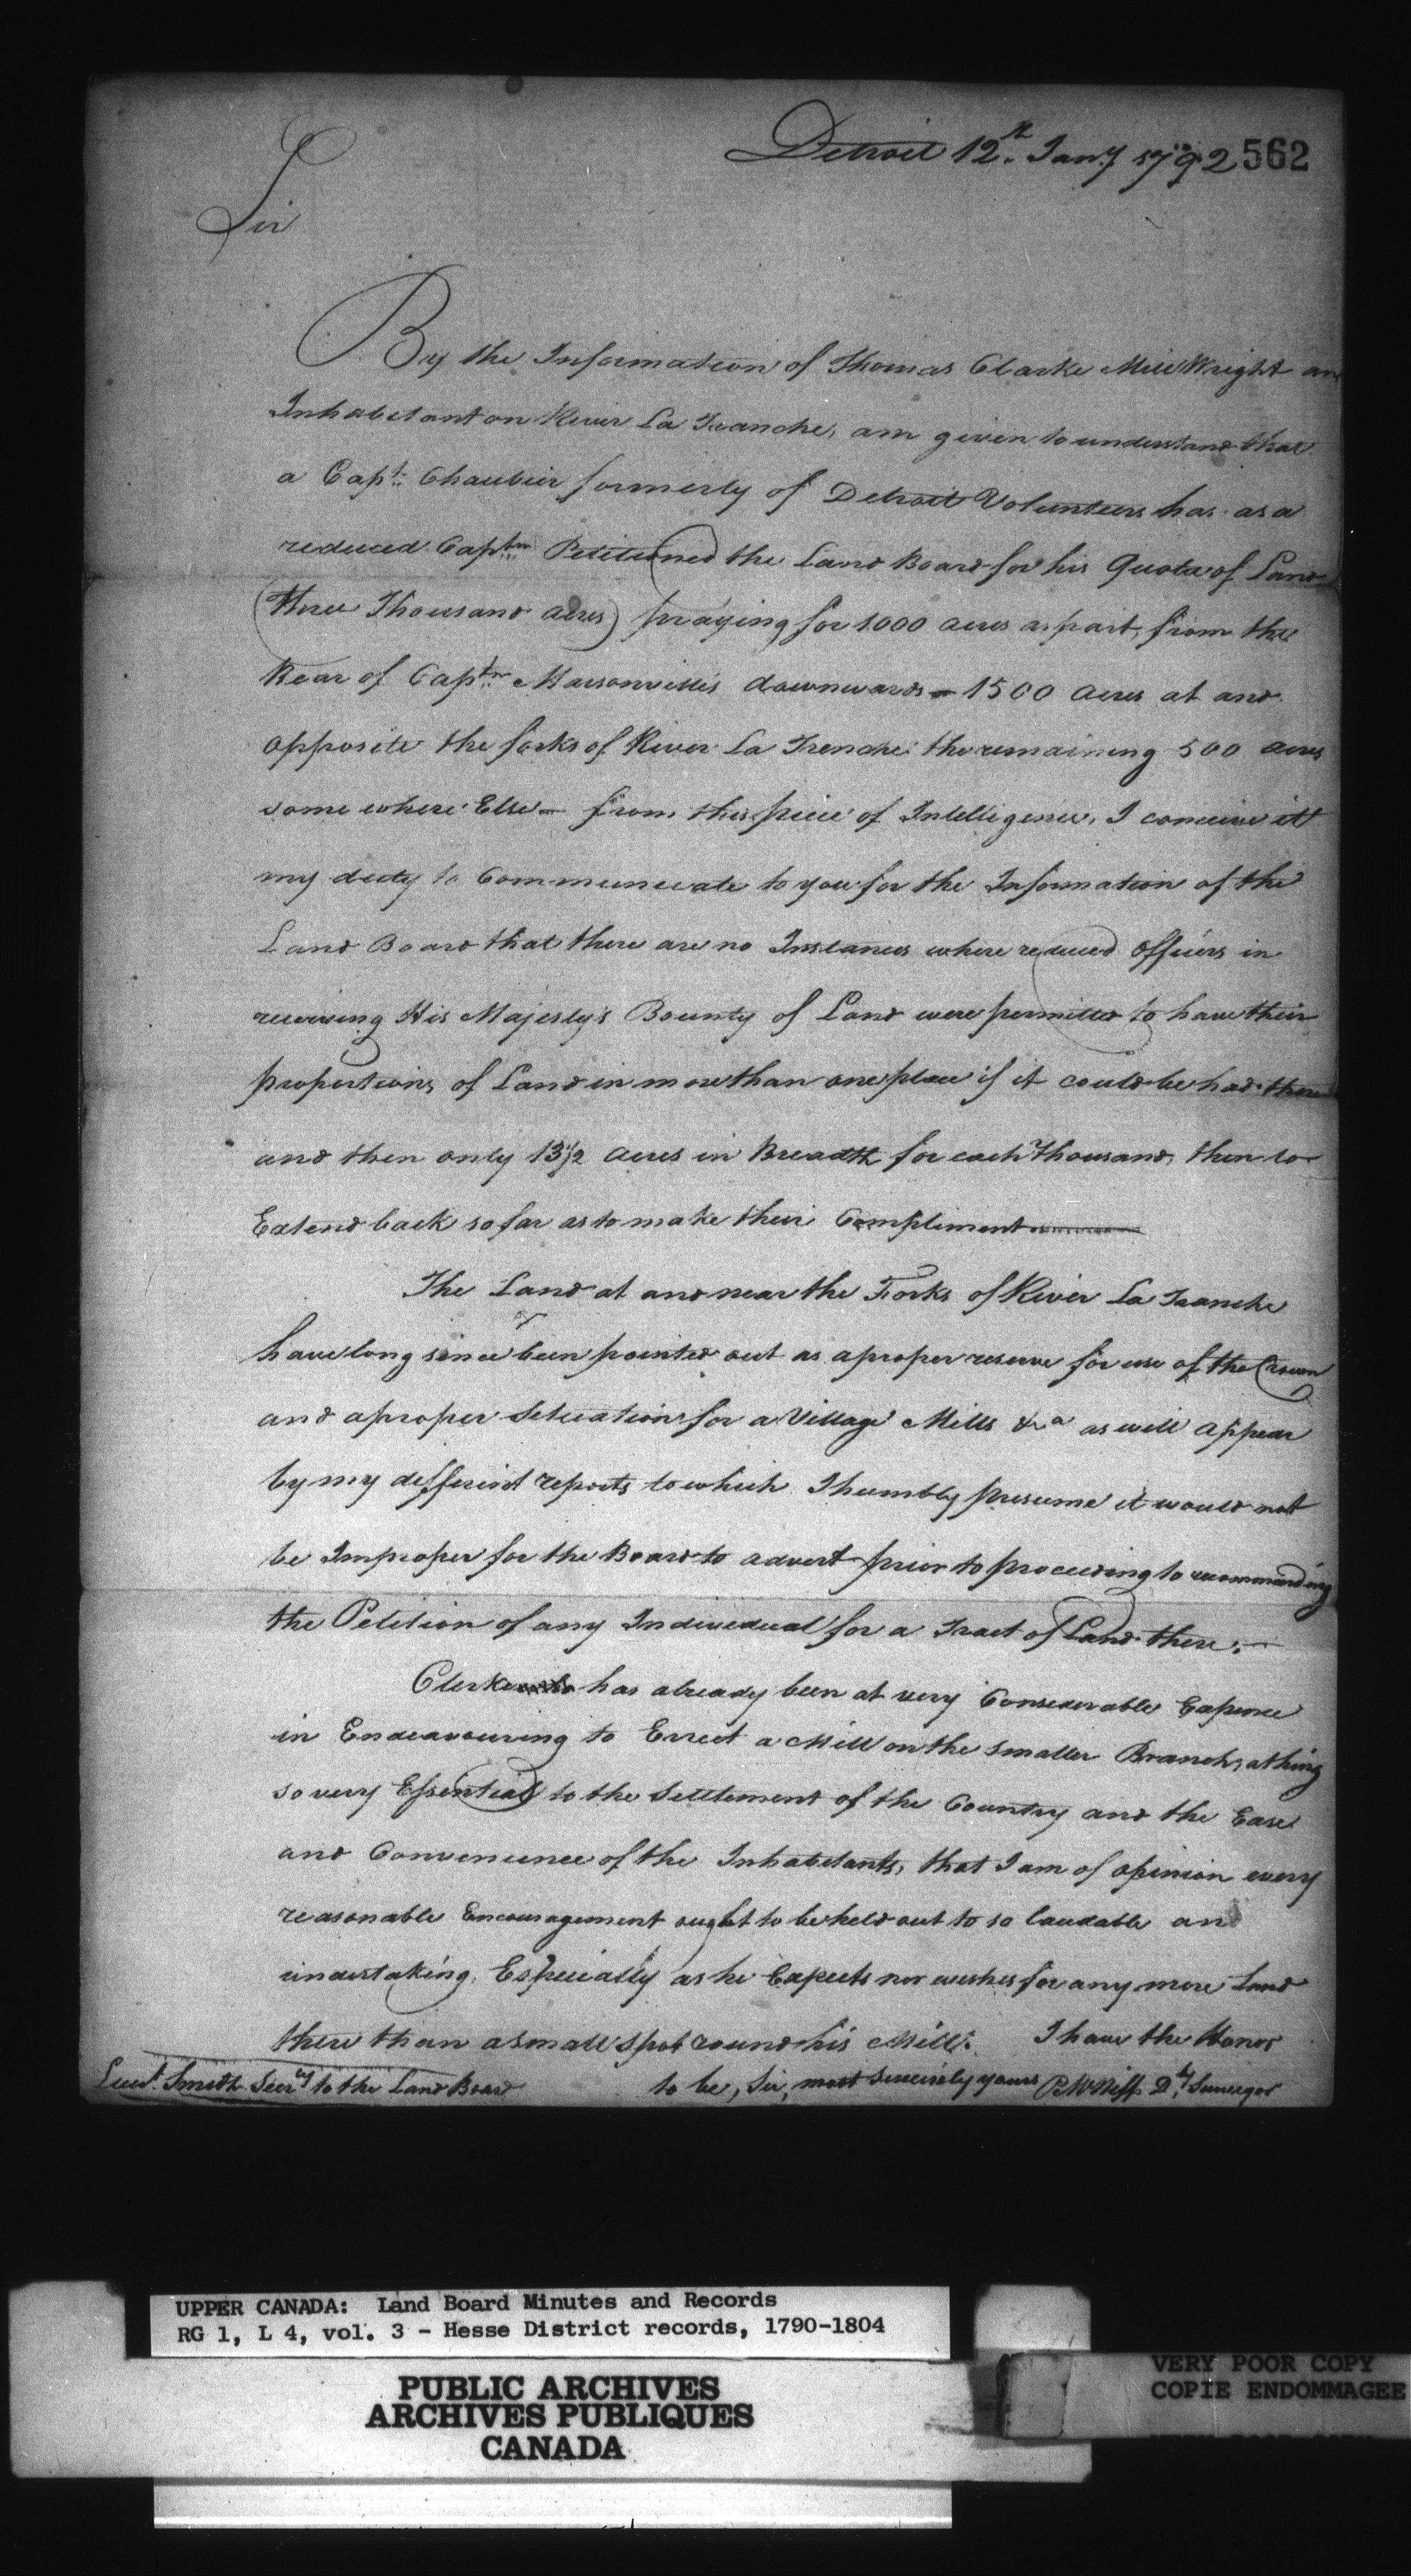 Detroit 12th. Jany 1792 562
Sir
By the Information of Thomas Clarke Mill Wright an
Inhabitant on River La Tranche, am given to understand that
a Capt. Chaubier formerly of Detroit Volunteers has as a
reduced Captn. Petitioned the Land Board for his Quota of Land
(three Thousand acres) praying for 1000 acres as part, from the
Rear of Captn. Maisonvilles downwards — 1500 acres at and
opposite the forks of River La Trenche the remaining 500 acres
some where Else — from this piece of Intelligence, I conceive it
my duty to Communicate to you for the Information of the
Land Board that there are no Instances where reduced Officers in
receiving His Majesty's Bounty of Land were permitted to have their
proportions of Land in more than one place if it could be had there
and then only 13 1/2 acres in Breadth for each Thousand, then to
Extend back so far as to make their Compliment
The Land at and near the Forks of River La Tranche
have long since been pointed out as a proper reserve for use of the Crown
and a proper Setuation for a Village Mills &ca as will appear
by my different reports to which I humbly presume it would not
be Improper for the Board to advert prior to proceeding to recommending
the Petition of any Individual for a Tract of Land there.
Clerke has already been at very Considerable Expence
in Endeavouring to Errect a Mill on the smaller Branch, a thing
so very Essential to the Settlement of the Country and the Ease
and Convenience of the Inhabitants, that I am of opinion every
reasonable Encouragement ought to be held out to so laudable an
undertaking, Especially as he Expects nor wishes for any more Land
there than a small spot round his Mill. I have the Honor
to be, Sir, most sincerely yours P. McNiff Dy. Surveyor
Lieut. Smith Secry to the Land Board
UPPER CANADA: Land Board Minutes and Records
RG 1, L 4, vol. 3 - Hesse District records, 1790-1804
PUBLIC ARCHIVES
ARCHIVES PUBLIQUES
CANADA
VERY POOR COPY
COPIE ENDOMMAGEE